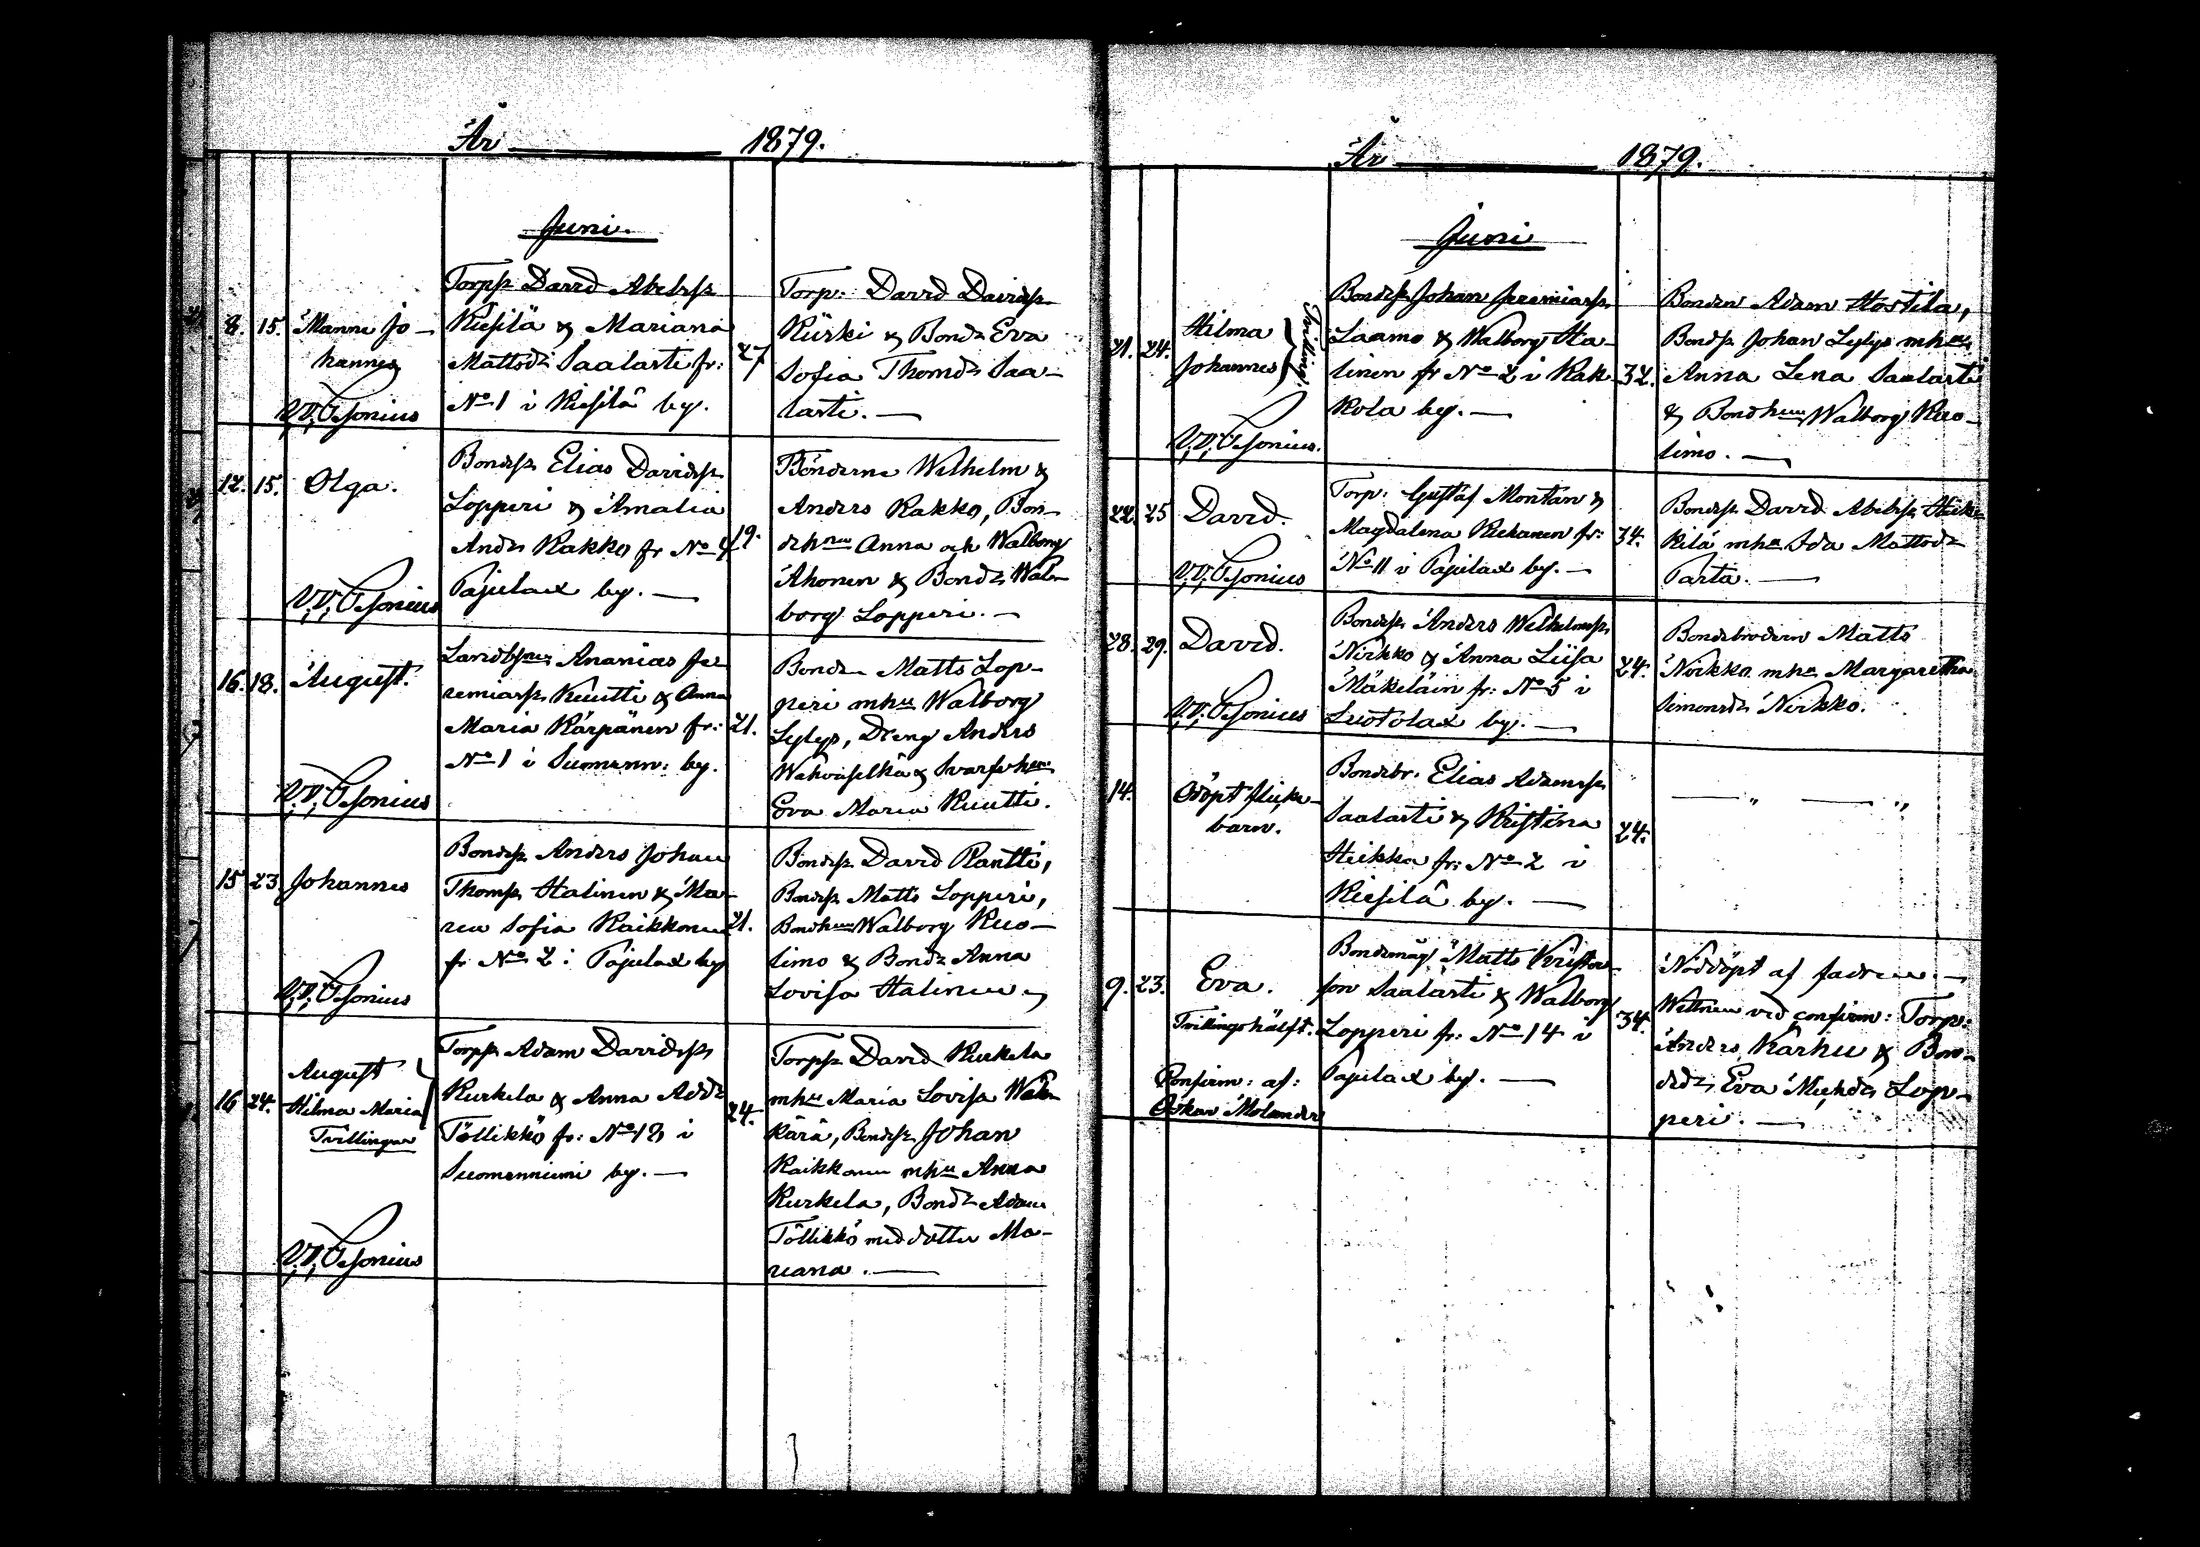 År 1879.
Juni.
8. 15. Manne Jo-
hannes
V.V. Pesonius
Torpss David Abelss
Kiesilä & Mariana
Mattsdr Saalasti fr:
No 1 i Kiesilä by.
27
Torp: David Davidss
Kürki & Bondr Eva
Sofia Thomdr Saa-
lasti. —
12. 15. Olga.
V.V. Pesonius
Bondess Elias Davidss
Lopperi & Amalia
Andr Kakko fr No 4
Pajulax by. —
19.
Bönderne Wilhelm &
Anders Kakko, Bon-
dehrur Anna och Walborg
Ahonen & Bondr Wal-
borg Lopperi. —
16. 18. August.
V.V. Pesonius
Ananias Je-
remiass Kuutti & Anna
Maria Kärpänen fr:
No 1 i Suomenn: by.
21.
Bonden Matts Lop-
peri mhu Walborg
Lylys, Dreng Anders
Wehväselkä &
Eva Maria Kuutti.
15 23 Johannes
V.V. Pesonius
Bondess Anders Johan
Thomss Halinen & Ma-
ria Sofia Kaikkonen
fr No 2 i Pajulax by
21.
Bondess David Rantti,
Bondess Matts Lopperi,
Bondhuu Walborg Kuo-
simo & Bondr Anna
Lovisa Halinen. —
16 24. August
Hilma Maria
Tvillingar
V.V. Pesonius
Torpss Adam Davidss
Kurkela & Anna Addr
Töllikkö fr: No 18 i
Suomenniemi by. —
24.
Torpss David Kurkela
mhu Maria Lovisa
Bondess Johan
Kaikkonen mhu Anna
Kurkela, Bondr Adam
Töllikkö med dotter Ma-
riana. —
År 1879.
Juni
21. 24. Hilma
Johannes
V.V. Pesonius.
Bondess Johan Jeremiass
Laamo & Walborg Ha-
linen fr No 2 i Kak-
kola by. —
32.
Bonden Adam Hostila,
Bondss Johan Lylys mhu
Anna Lena Saalasti
& Bondhuu Walborg Kuo-
simo. —
22 25 David.
V.V. Pesonius
Torp: Gustaf Montan &
Magdalena Kiehanen fr:
No 11 i Pajulax by. —
34.
Bondess David Abelss Heik-
kilä mhu Ida Mattsdr
Parta. —
28. 29. David.
V.V. Pesonius
Bondess Anders Wilhelmss
Nirkko & Anna Liisa
Mäkeläin fr: No 5 i
Luotolax by. —
24.
Bondebrodern Matts
Nirkko mhu Margaretha
Simonsdr Nirkko.
14. Odöpt flicke-
barn.
Bondebr. Elias Adamss
Saalasti & Kristina
Heikka fr: No 2 i
Kiesilä by. —
24.
— „ — „
9. 23. Eva.
Tvillingshälft.
Confirm: af:
Oskar Molander
Bondemåg Matts Kristers-
son Saalasti & Walborg
Lopperi fr: No 14 i
Pajulax by. —
34.
Nöddöpt af fadren. —
Wittnen vid confirm: Torp:
Anders Karhu & Bon-
dedr Eva Michdr Lop-
peri. —